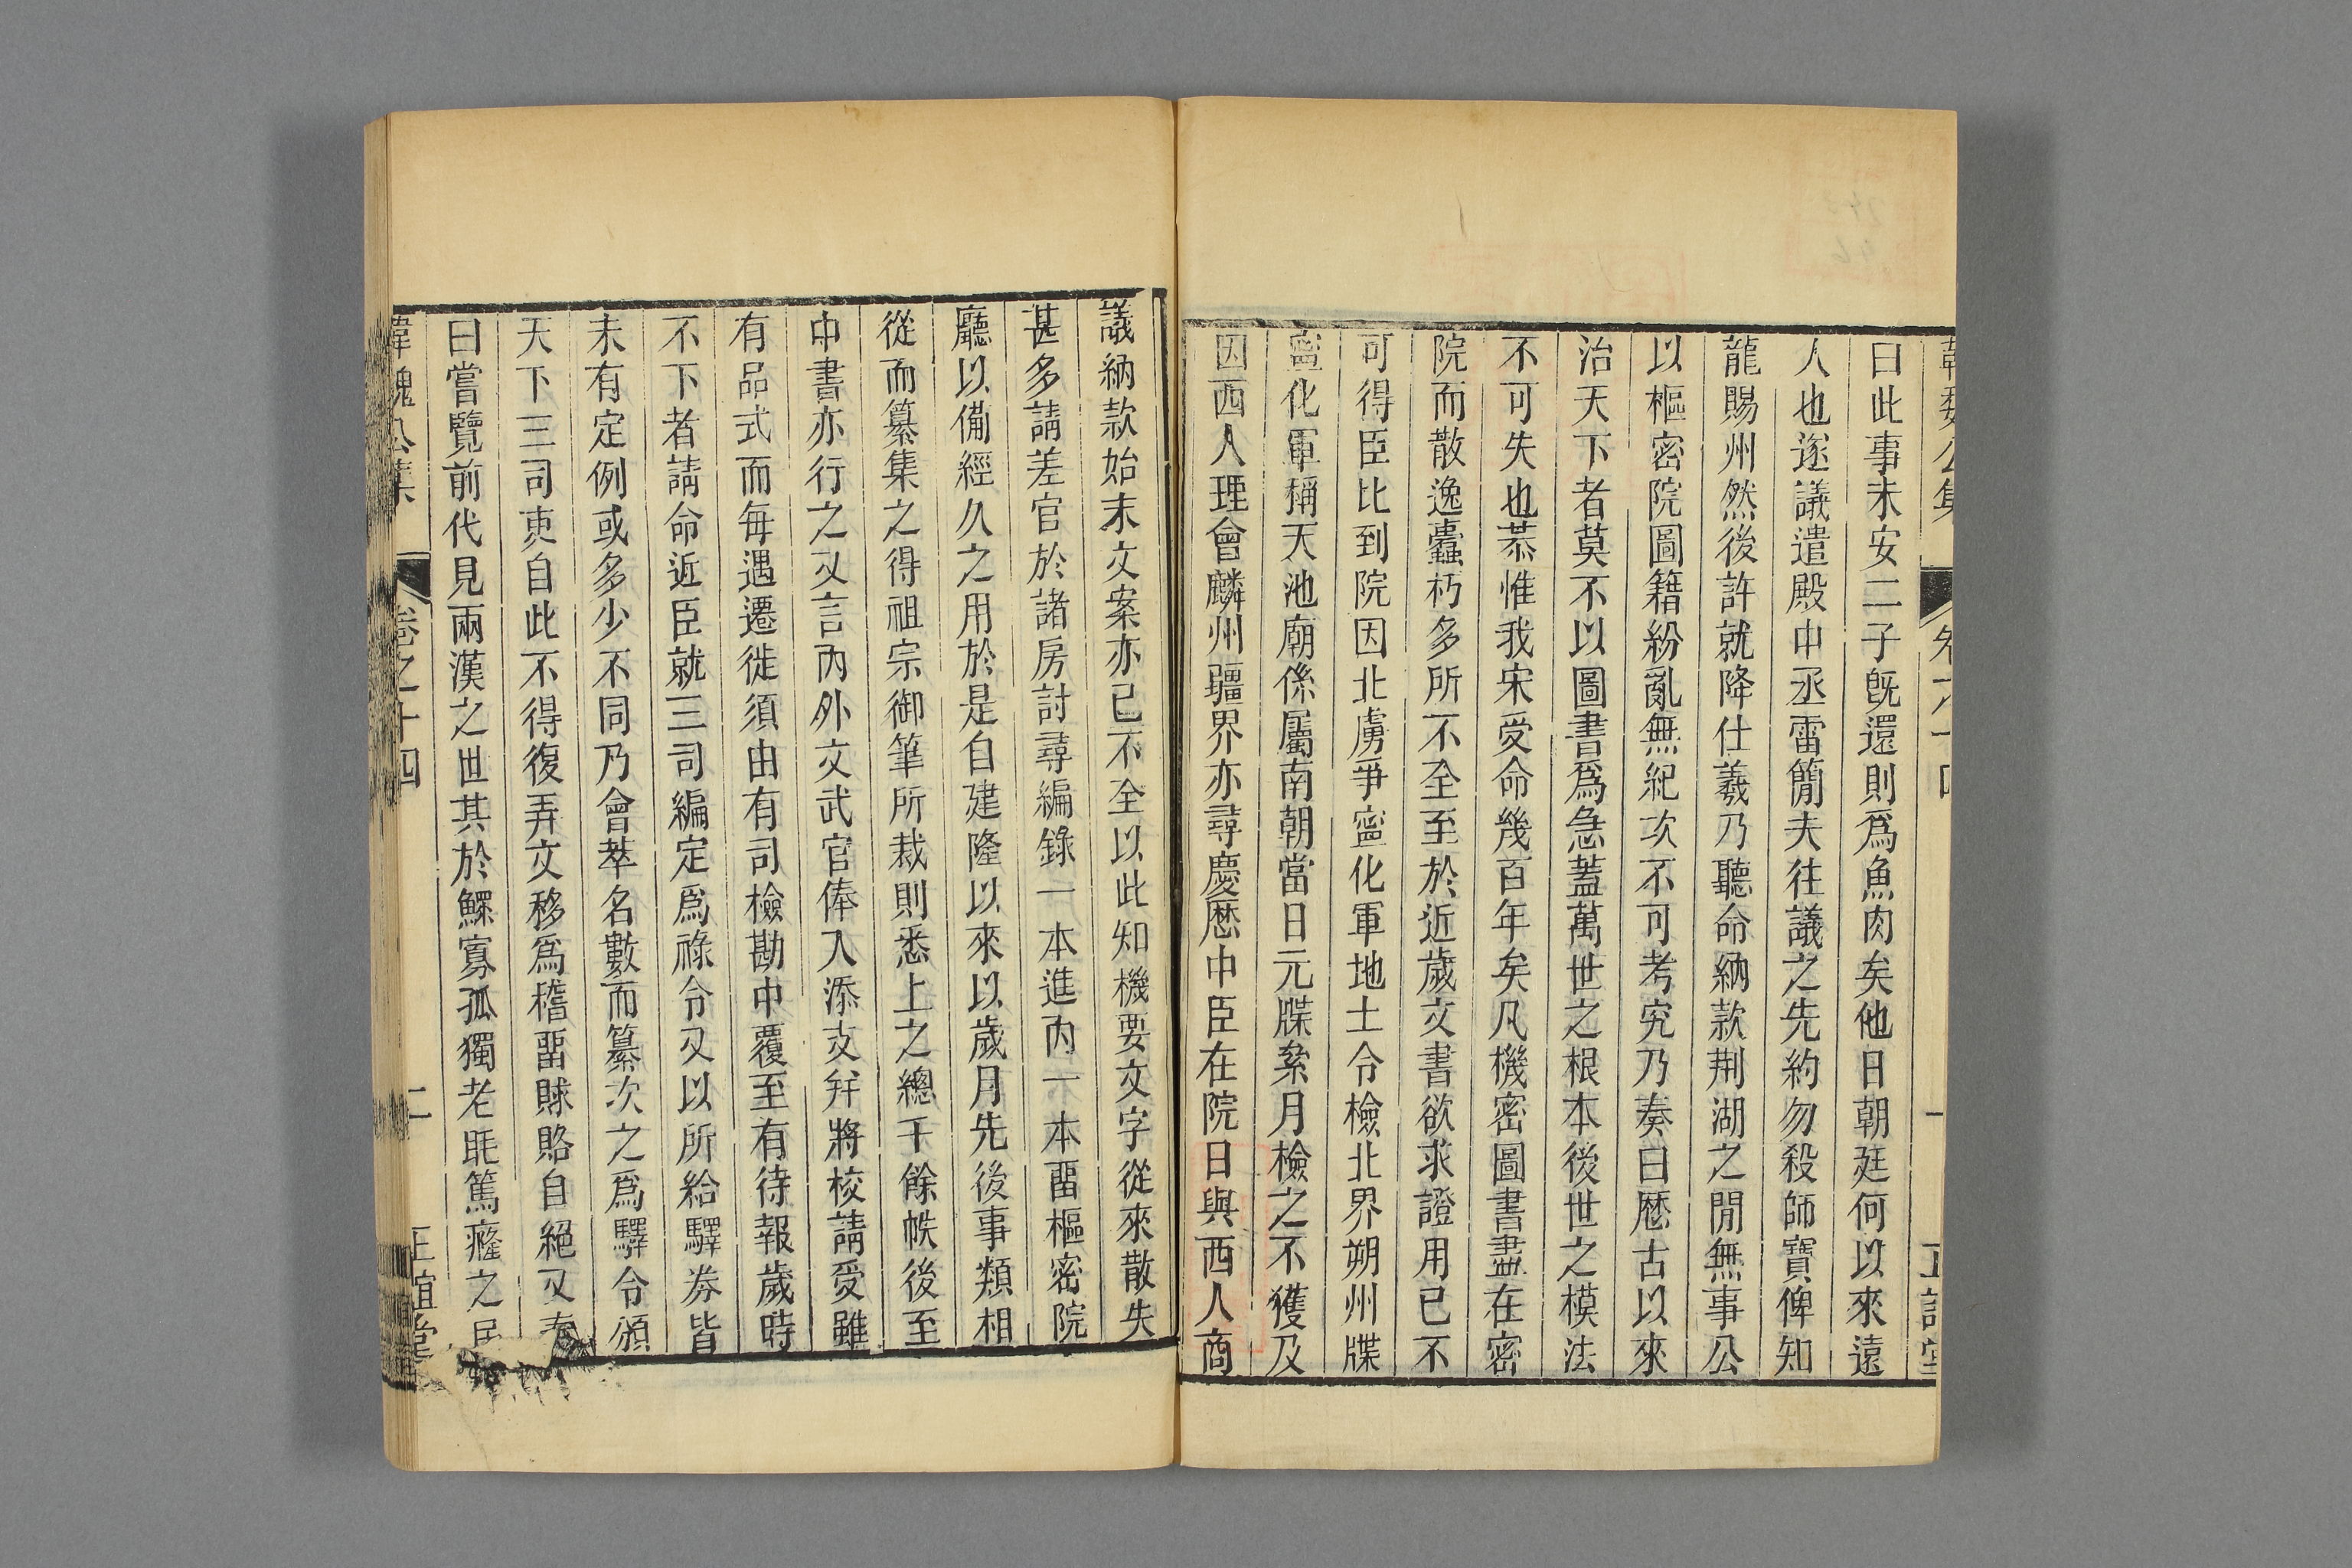 曰此事未安二子旣還則爲魚肉矣他日朝廷何以來遠
人也遂議遣殿中丞雷簡夫往議之先約勿殺師寶俾知
龍賜州然後許就降仕羲乃聽命納款荆湖之閒無事公
以樞密院圖籍紛亂無紀次不可考究乃奏曰歷古以來
治天下者莫不以圖書爲急蓋萬世之根本後世之模法
不可失也恭惟我宋受命幾百年矣凡機密圖書盡在密
院而散逸蠹朽多所不全至於近歲文書欲求證用已不
可得臣比到院因北虜爭寧化軍地土令檢北界朔州牒
寧化軍稱天池廟係屬南朝當日元牒絫月檢之不獲及
因西人理會麟州疆界亦尋慶歷中臣在院日與西人商
議納款始末文案亦已不全以此知機要文字從來散失
甚多請差官於諸房討尋編錄一本進內一本畱樞密院
廳以備經久之用於是自建隆以來以歲月先後事類相
從而纂集之得祖宗御筆所裁則悉上之總千餘帙後至
中書亦行之又言內外文武官俸入添支幷將校請受雖
有品式而每遇遷徙須由有司檢勘中覆至有待報歲時
不下者請命近臣就三司編定爲祿令又以所給驛券皆
未有定例或多少不同乃會萃名數而纂次之爲驛令頒
天下三司吏自此不得復弄文移爲稽畱賕賂自絕又奏
曰嘗覽前代見兩漢之世其於鰥寡孤獨老眊篤癃之民
韓魏公集
卷之十四
二
正誼堂